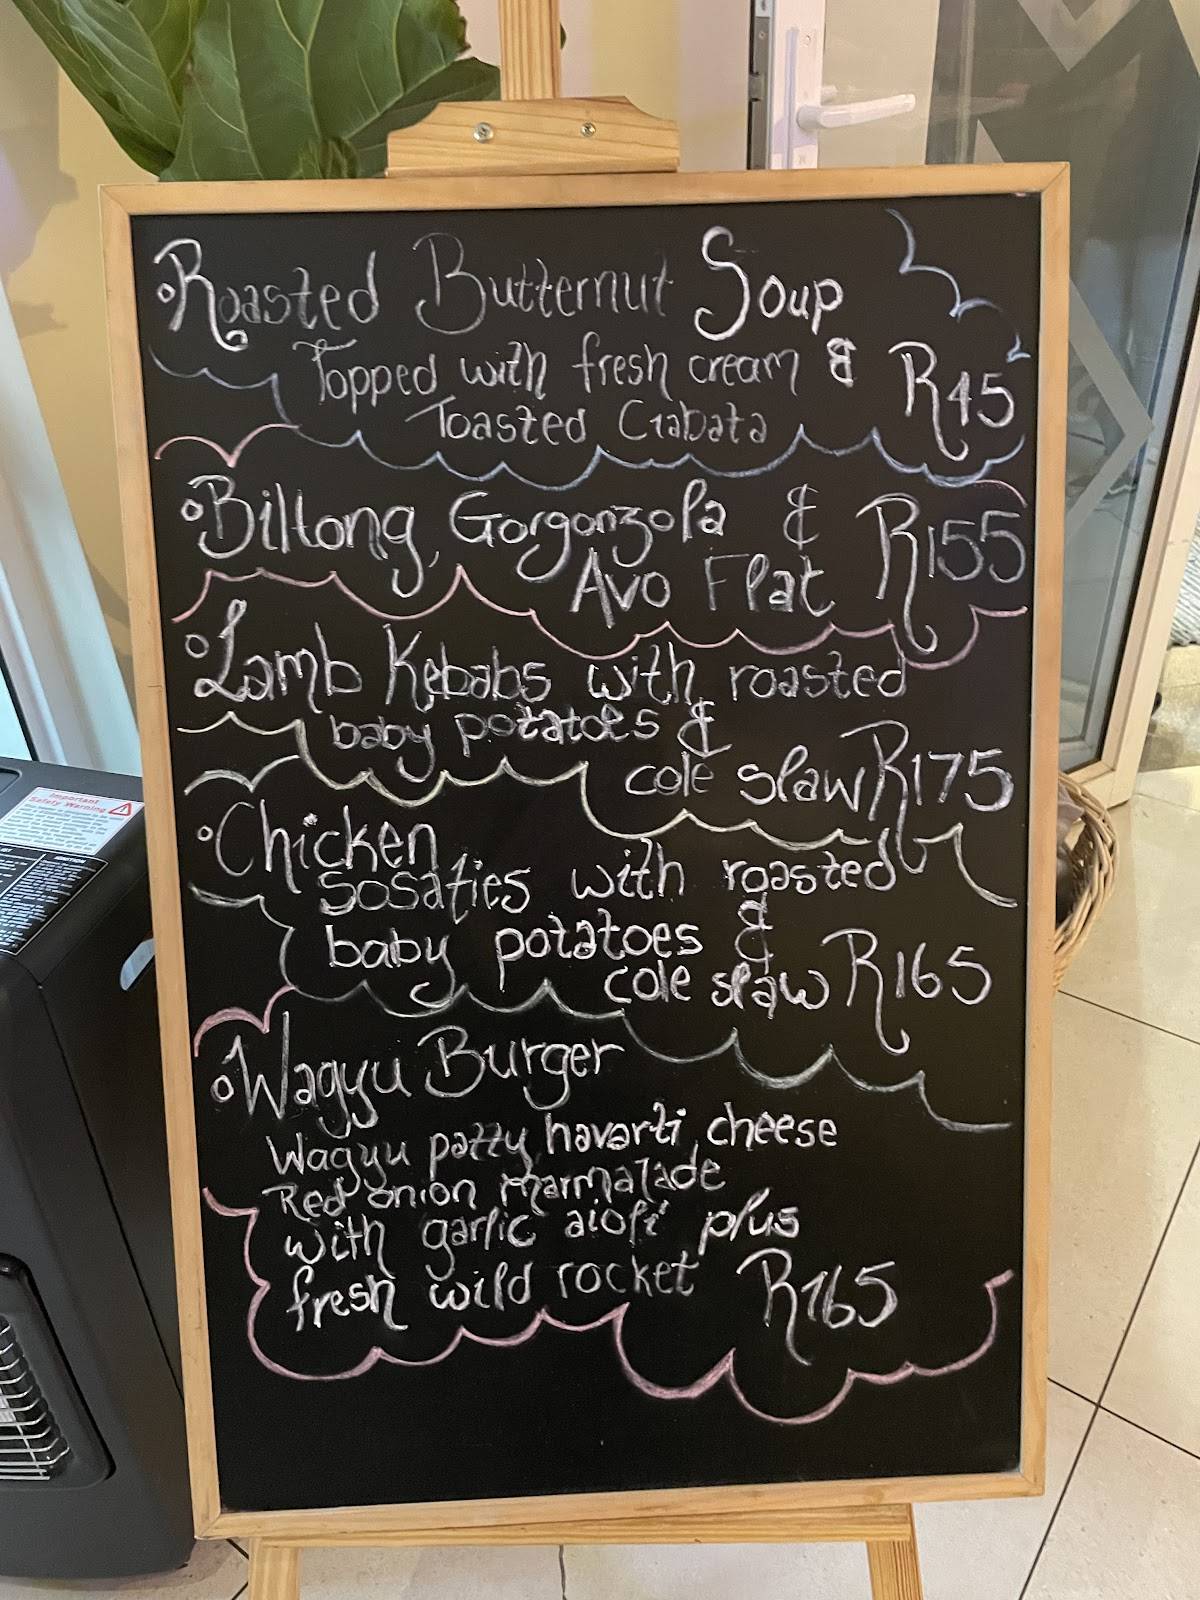 Roasted Butternut Soup
Topped with fresh cream &
Toasted Ciabata
R45
Biltong, Gorgonzola &
Avo Flat
R155
Lamb Kebabs with roasted
baby potatoes &
cole slaw R175
Chicken
sosaties with roasted
baby potatoes &
cole slaw R165
Wagyu Burger
Wagyu patty, havarti, cheese
Red onion marmalade
with garlic aioli plus
fresh wild rocket R165
Important
Safety Warning